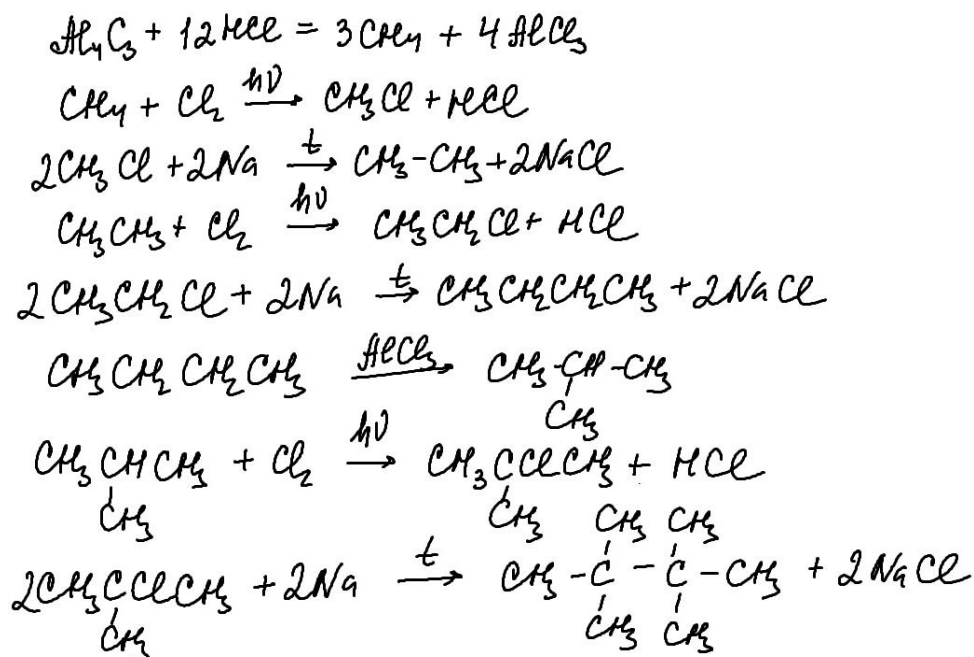 Al₄C₃ + 12HCl = 3CH₄ + 4AlCl₃
CH₄ + Cl₂ —hν→ CH₃Cl + HCl
2CH₃Cl + 2Na —t→ CH₃-CH₃ + 2NaCl
CH₃CH₃ + Cl₂ —hν→ CH₃CH₂Cl + HCl
2CH₃CH₂Cl + 2Na —t→ CH₃CH₂CH₂CH₃ + 2NaCl
CH₃CH₂CH₂CH₃ —AlCl₃→ CH₃-CH-CH₃
CH₃
CH₃CHCH₃ + Cl₂ —hν→ CH₃CClCH₃ + HCl
CH₃ CH₃
CH₃ CH₃
2CH₃CClCH₃ + 2Na —t→ CH₃-C-C-CH₃ + 2NaCl
CH₃ CH₃ CH₃